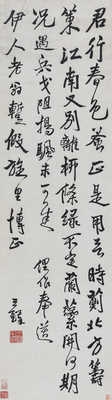 君行春色正是用兵時薊北方籌
策江南又別離柳條綠不定蘭蘂開何期
況遇兵戈阻揚颿未可遲 俚奉送
伊人老翁暫假旋里博正
王